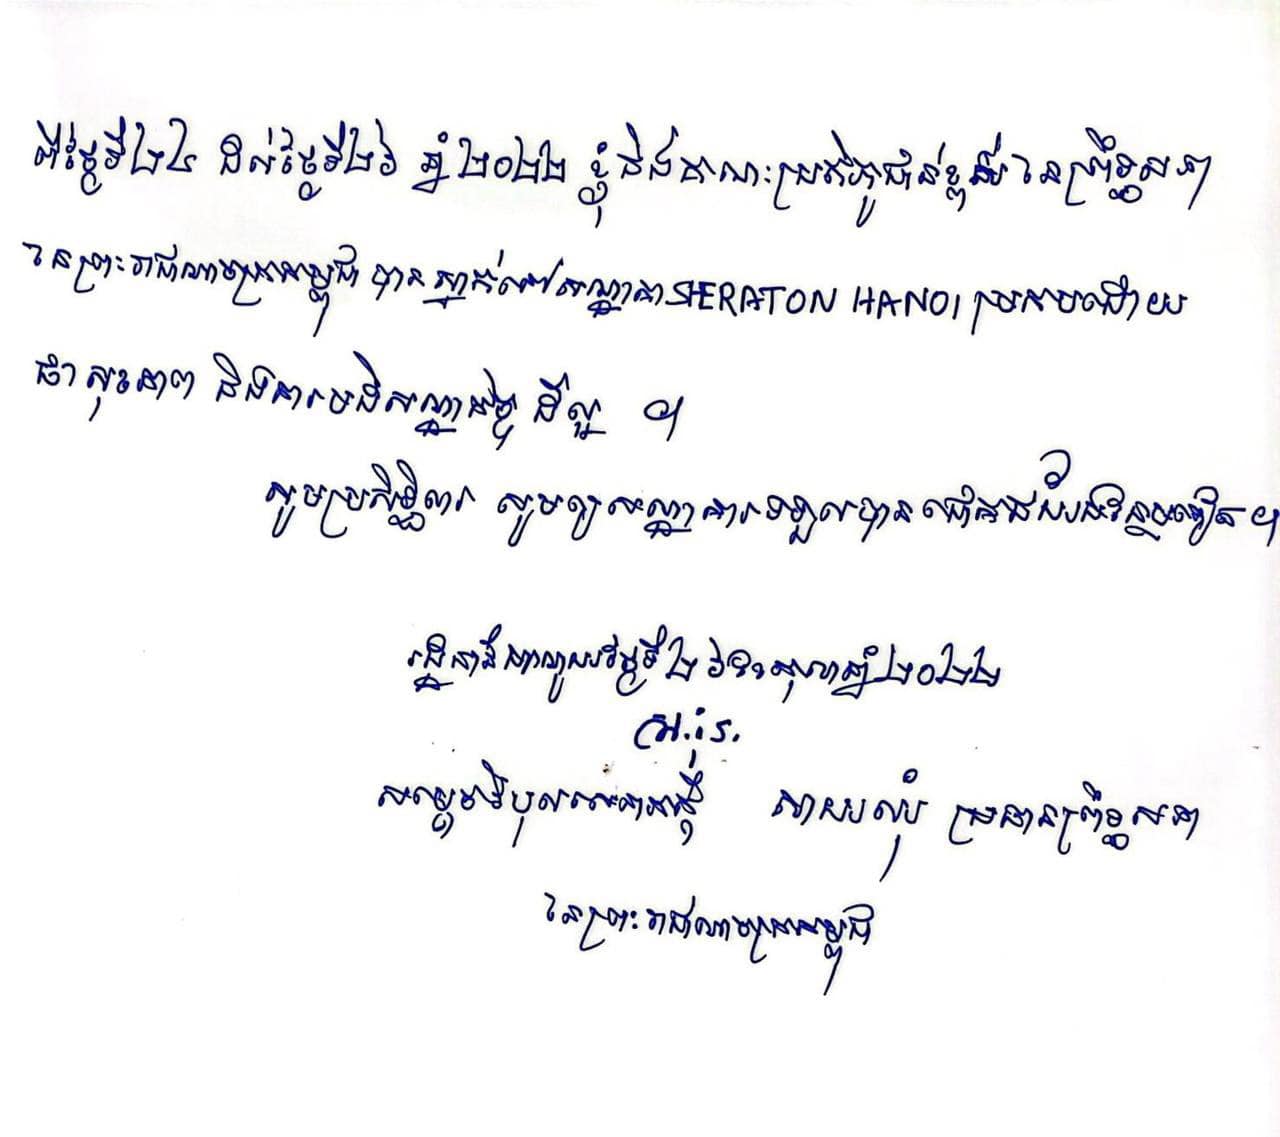 ពីថ្ងៃទី២៤ ដល់ថ្ងៃទី២៦ ឆ្នាំ២០២២ ខ្ញុំនិងគណៈប្រតិភូជាន់ខ្ពស់ នៃព្រឹទ្ធសភា
នៃព្រះរាជាណាចក្រកម្ពុជា បានស្នាក់នៅសណ្ឋាគារ SHERATON HANOI ប្រកបដោយ
ផាសុខភាព និងការ
សូមប្រសិទ្ធិពរ សូមឲ្យសណ្ឋាគារទទួលបានជោគជ័យថែមទៀត។
រដ្ឋធានីហាណូយ ថ្ងៃទី២៦ ខែតុលា ឆ្នាំ២០២២
សម្តេចវិបុលសេនាភក្តី សាយ ឈុំ ប្រធានព្រឹទ្ធសភា
នៃព្រះរាជាណាចក្រកម្ពុជា